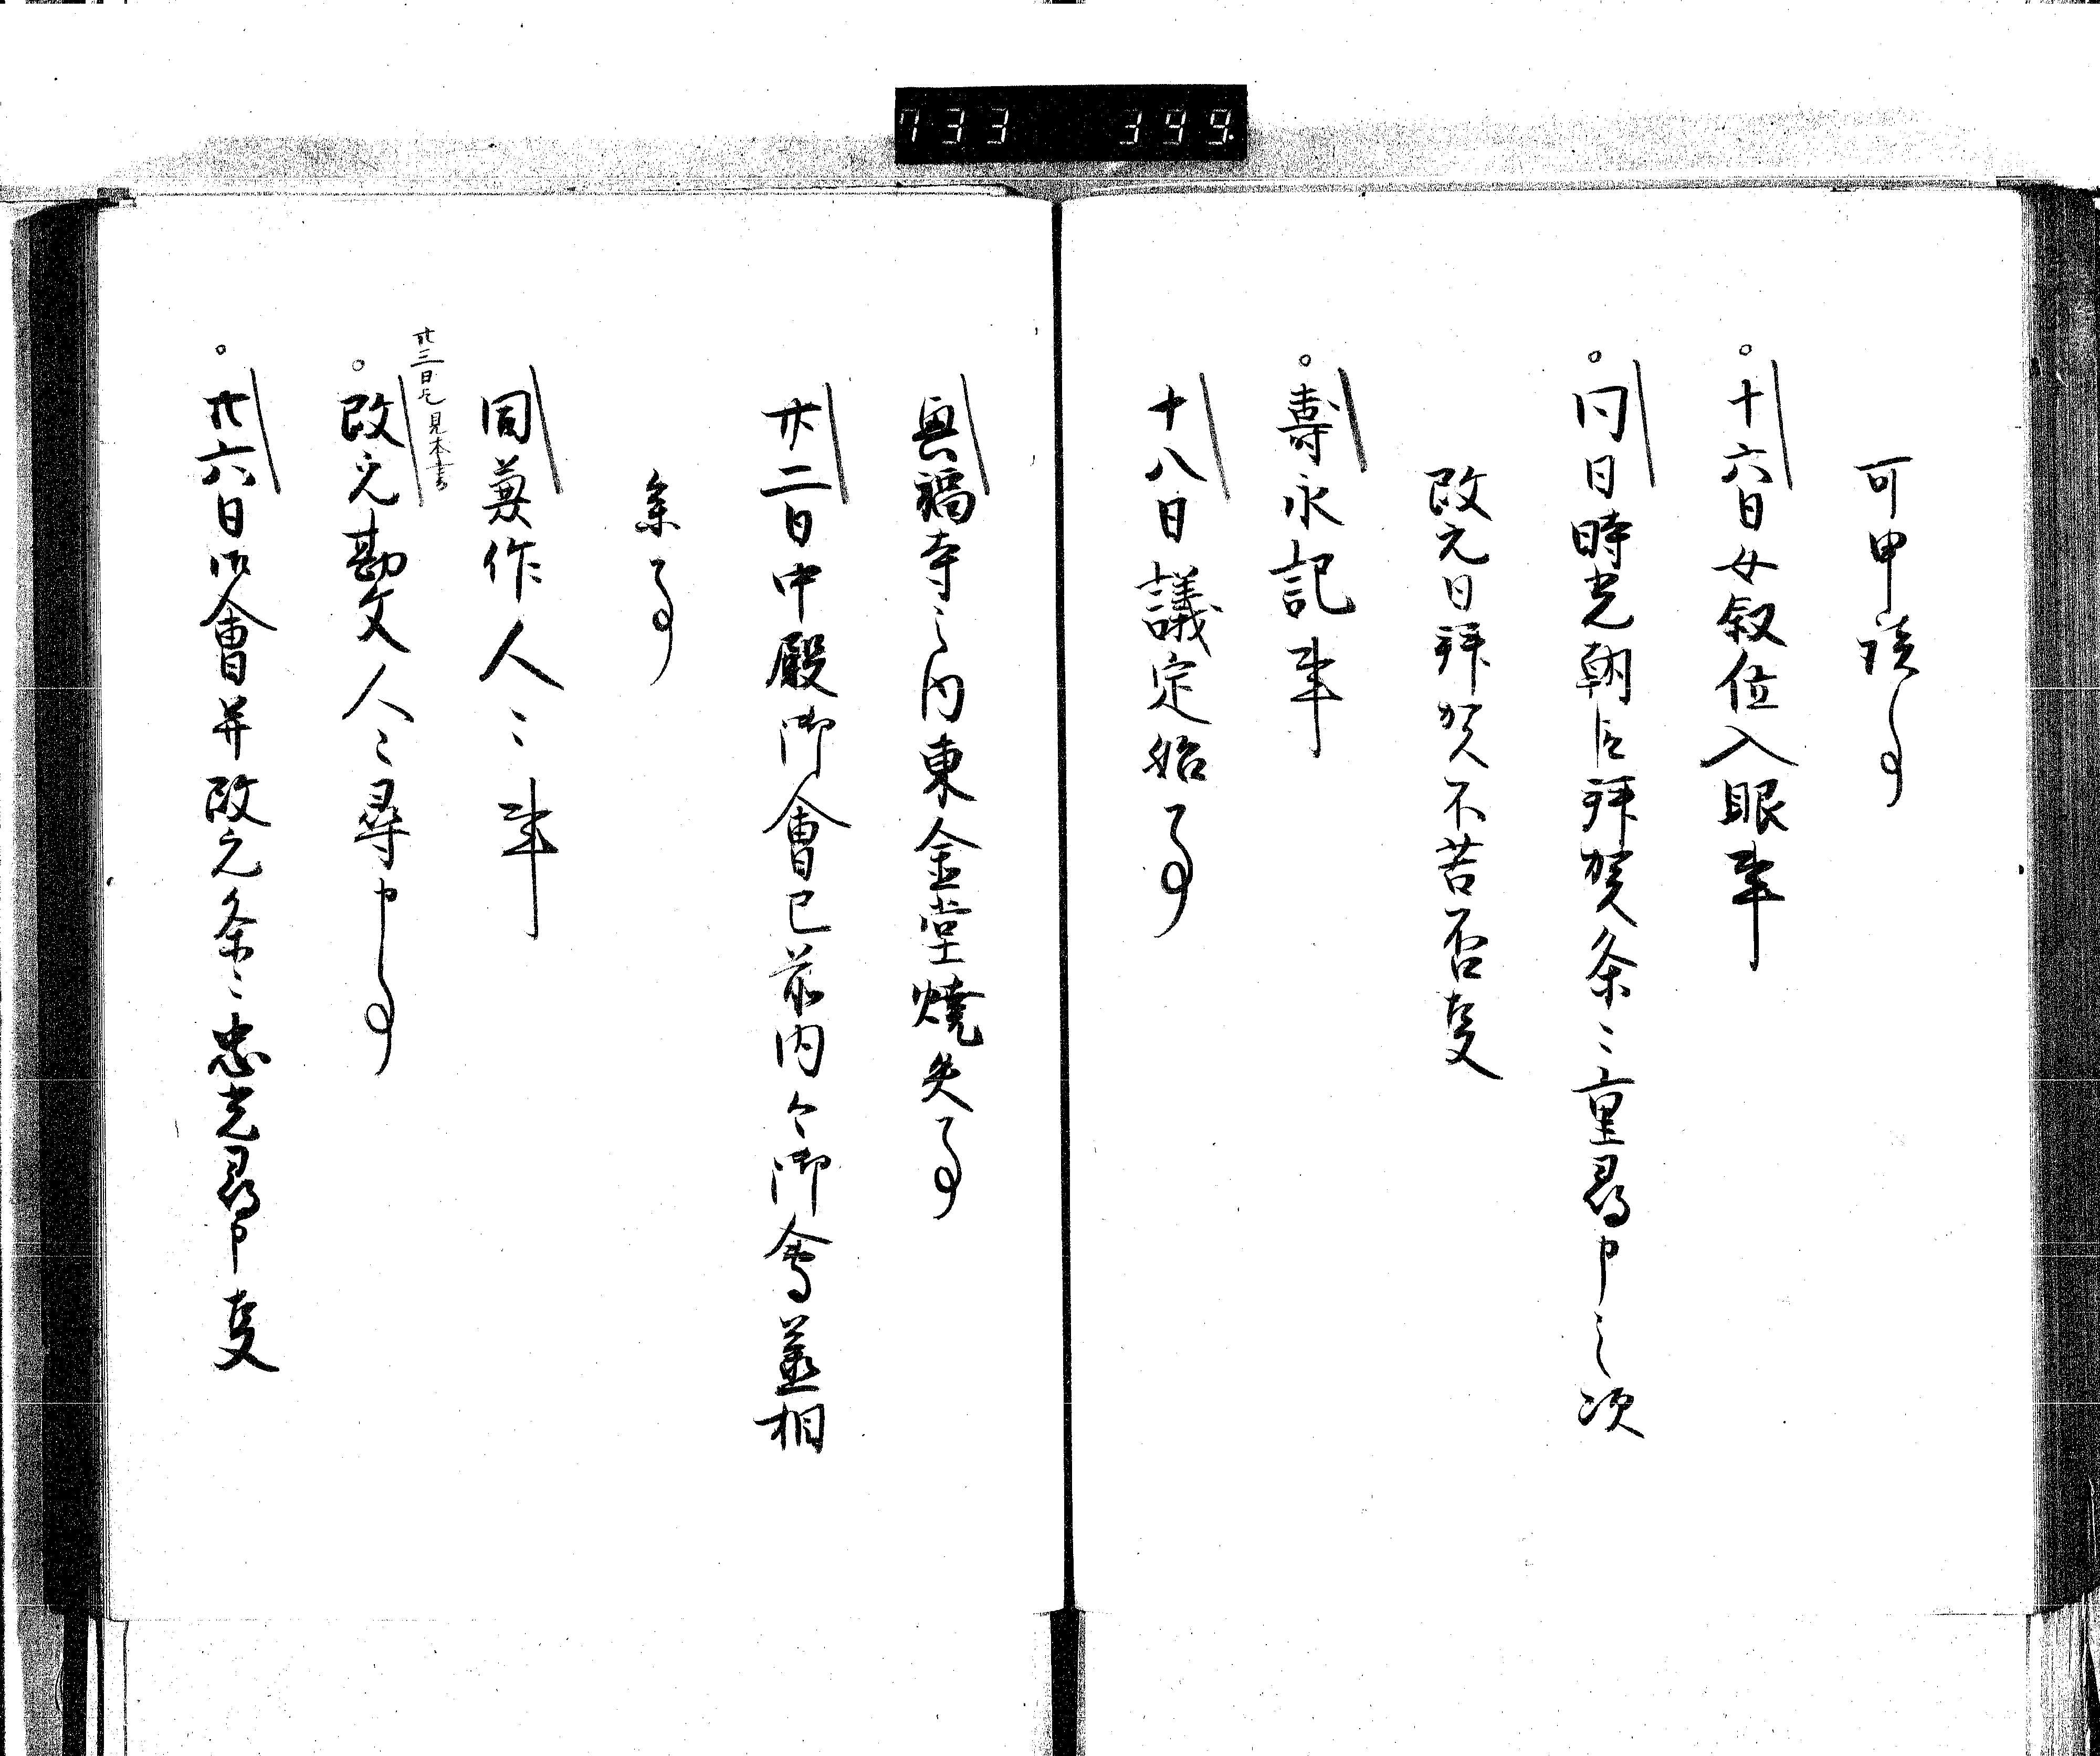 733 399
可申請事
。十六日女叙位入眼事
。同日時光朝臣拝賀条々重尋申之次
改元日拝賀不苦否事
。壽永記事
十八日議定始事
興福寺之内東金堂焼失事
廿二日中殿御會已前内々御會並相
条事
同兼作人々事
廿三日也見本書
。改元勘文人々尋申事
。廿六日御會并改元条々忠光尋申事